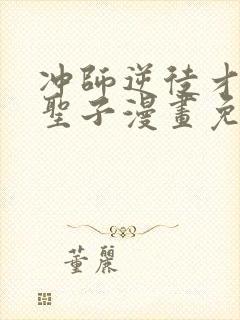 冲師逆徒才
聖子漫畫免
董麗